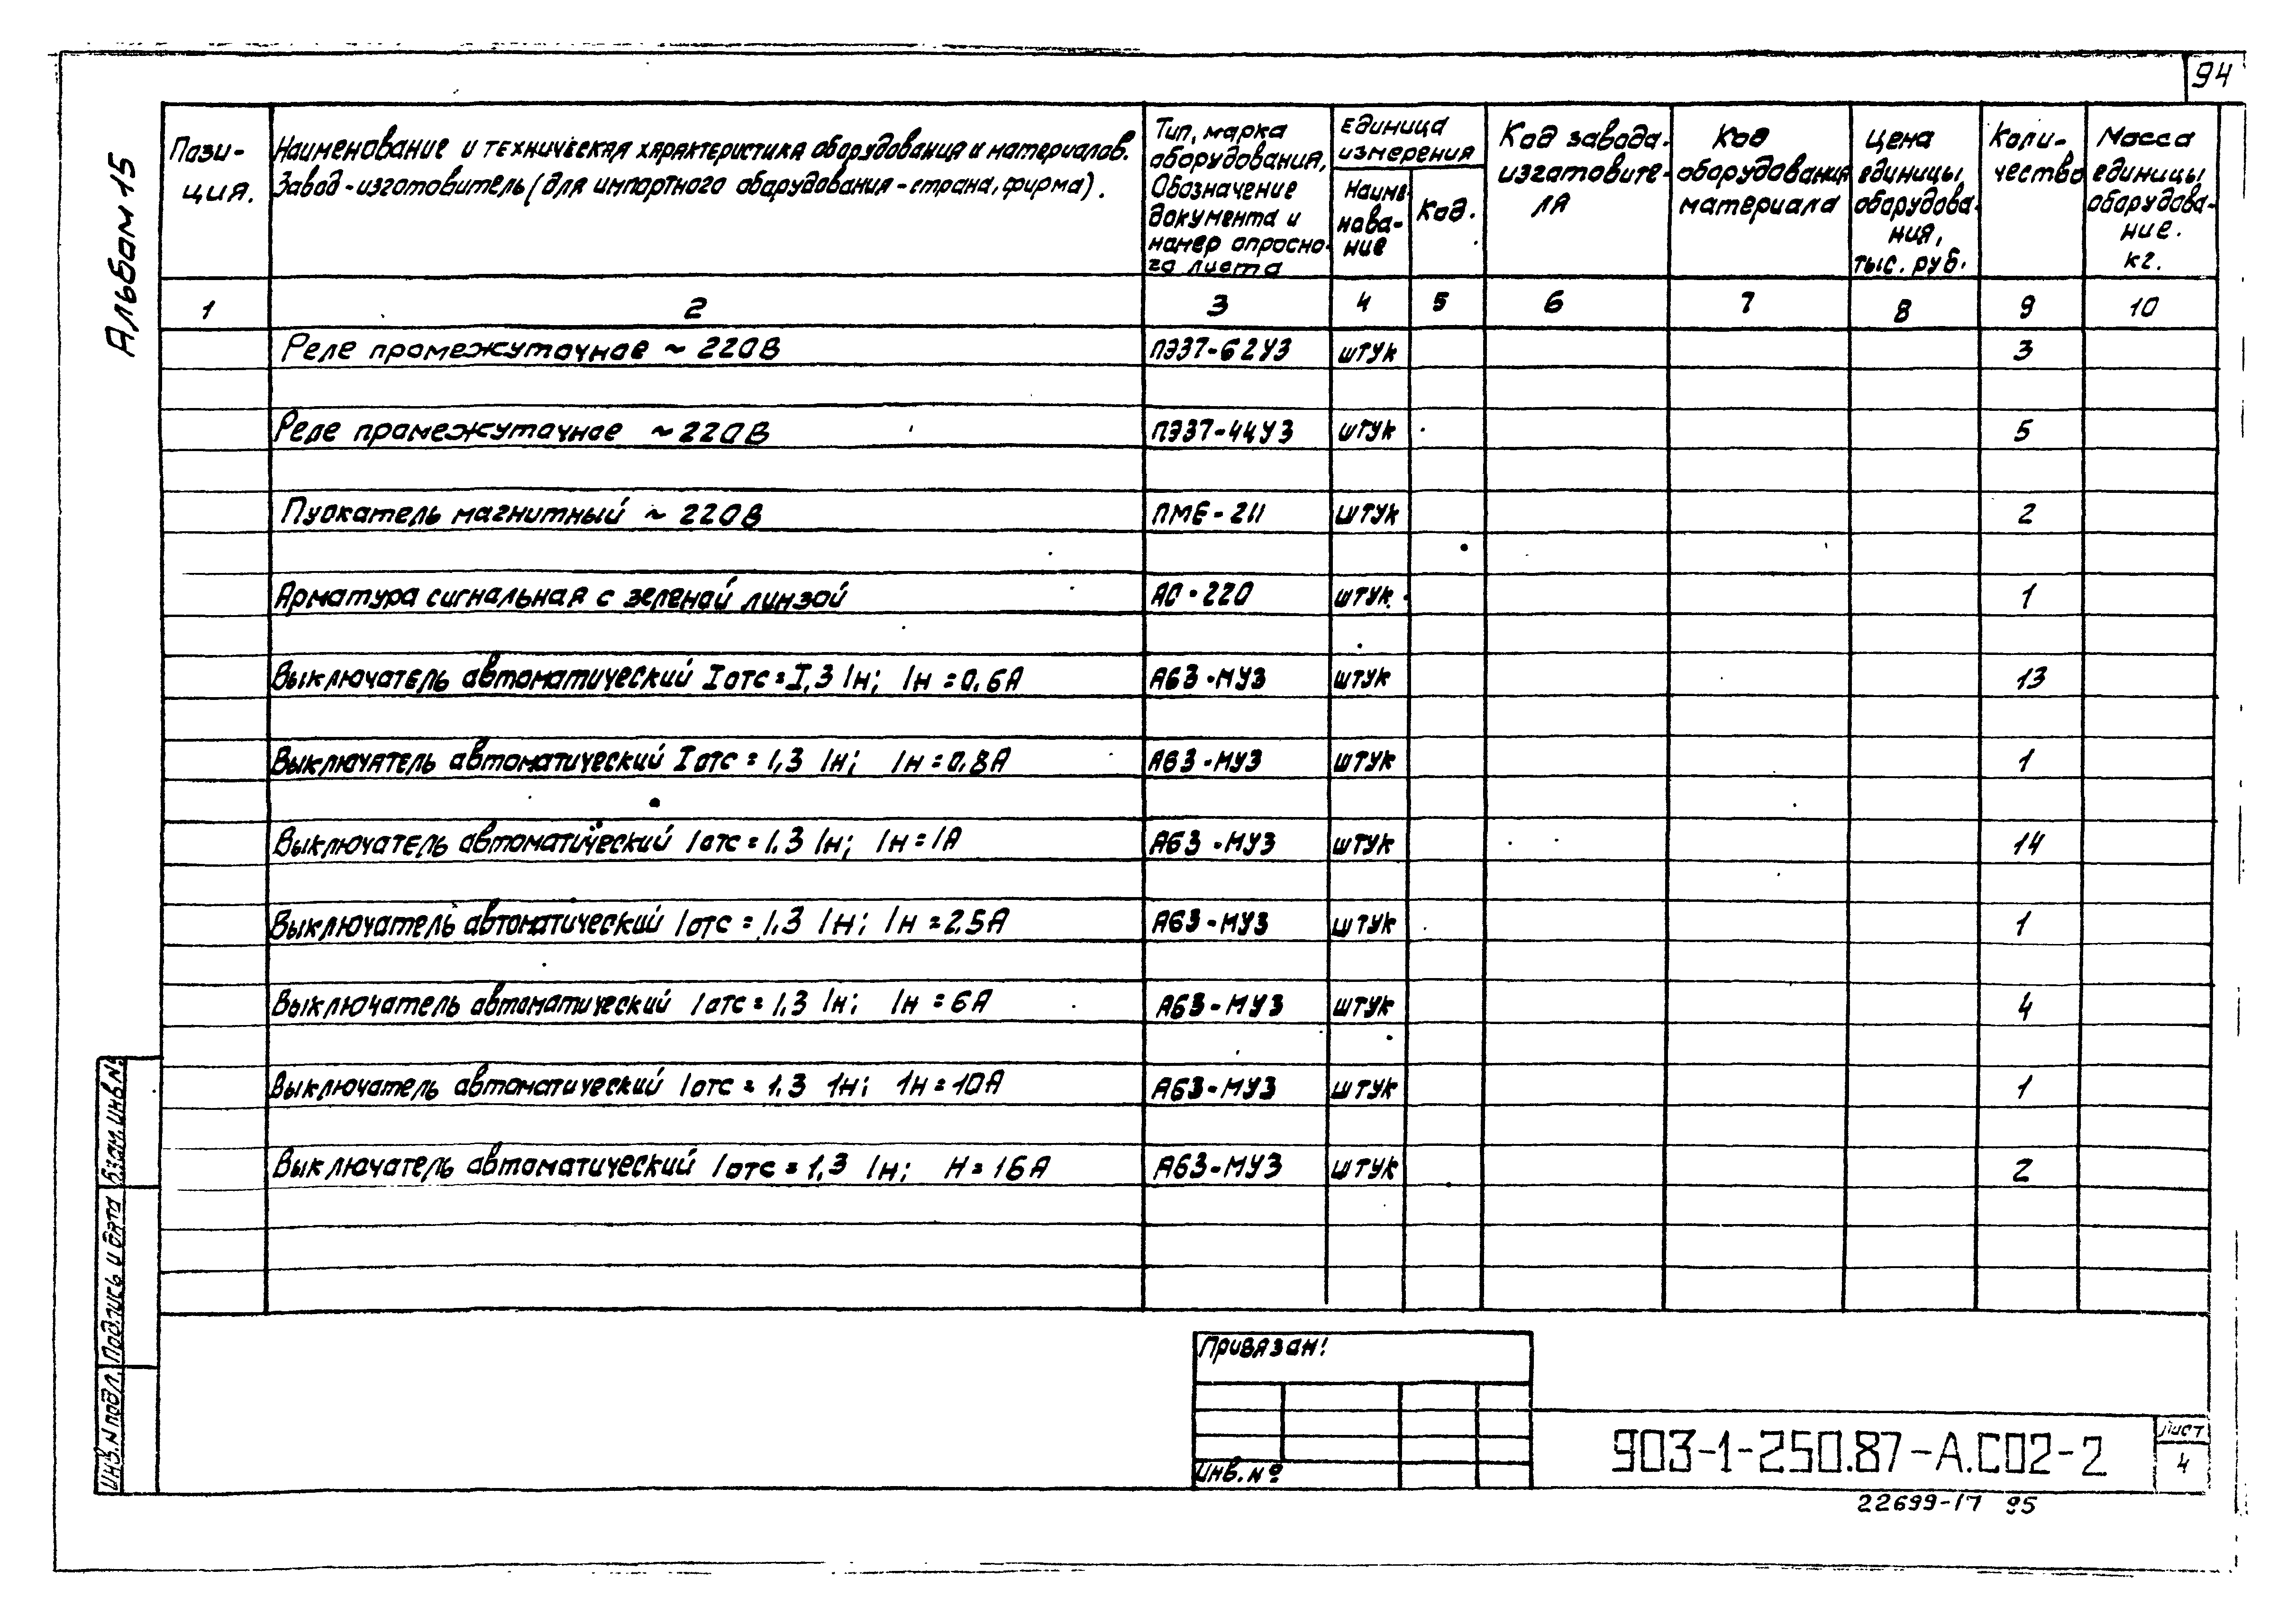 94
Альбом 15
Пози-
ция.
Наименование и техническая характеристика оборудования и материалов.
Завод-изготовитель (для импортного оборудования - страна, фирма).
Тип, марка
оборудования,
Обозначение
документа и
номер опросно-
го листа
Единица
измерения
Наиме-
нова-
ние
Код.
Код завода-
изготовите-
ля
Код
оборудования
материала
Цена
единицы
оборудова-
ния,
тыс. руб.
Коли-
чество
Масса
единицы
оборудова-
ние.
кг.
1 2 3 4 5 6 7 8 9 10
Реле промежуточное ~ 220В ПЭ37-62У3 штук 3
Реле промежуточное ~ 220В ПЭ37-44У3 штук 5
Пускатель магнитный ~ 220В ПМЕ-211 штук 2
Арматура сигнальная с зеленой линзой АС-220 штук 1
Выключатель автоматический Iотс = I,3 Iн; Iн = 0,6А А63-МУ3 штук 13
Выключатель автоматический Iотс = 1,3 Iн; Iн = 0,8А А63-МУ3 штук 1
Выключатель автоматический Iотс = 1,3 Iн; Iн = 1А А63-МУ3 штук 14
Выключатель автоматический Iотс = 1,3 Iн; Iн = 2,5А А63-МУ3 штук 1
Выключатель автоматический Iотс = 1,3 Iн; Iн = 6А А63-МУ3 штук 4
Выключатель автоматический Iотс = 1,3 Iн; Iн = 10А А63-МУ3 штук 1
Выключатель автоматический Iотс = 1,3 Iн; Н = 16А А63-МУ3 штук 2
Взам. инв. №
Подпись и дата
Инв. N подл.
Привязан:
Инв. №
903-1-250.87-А.С02-2
Лист
4
22699-17 95